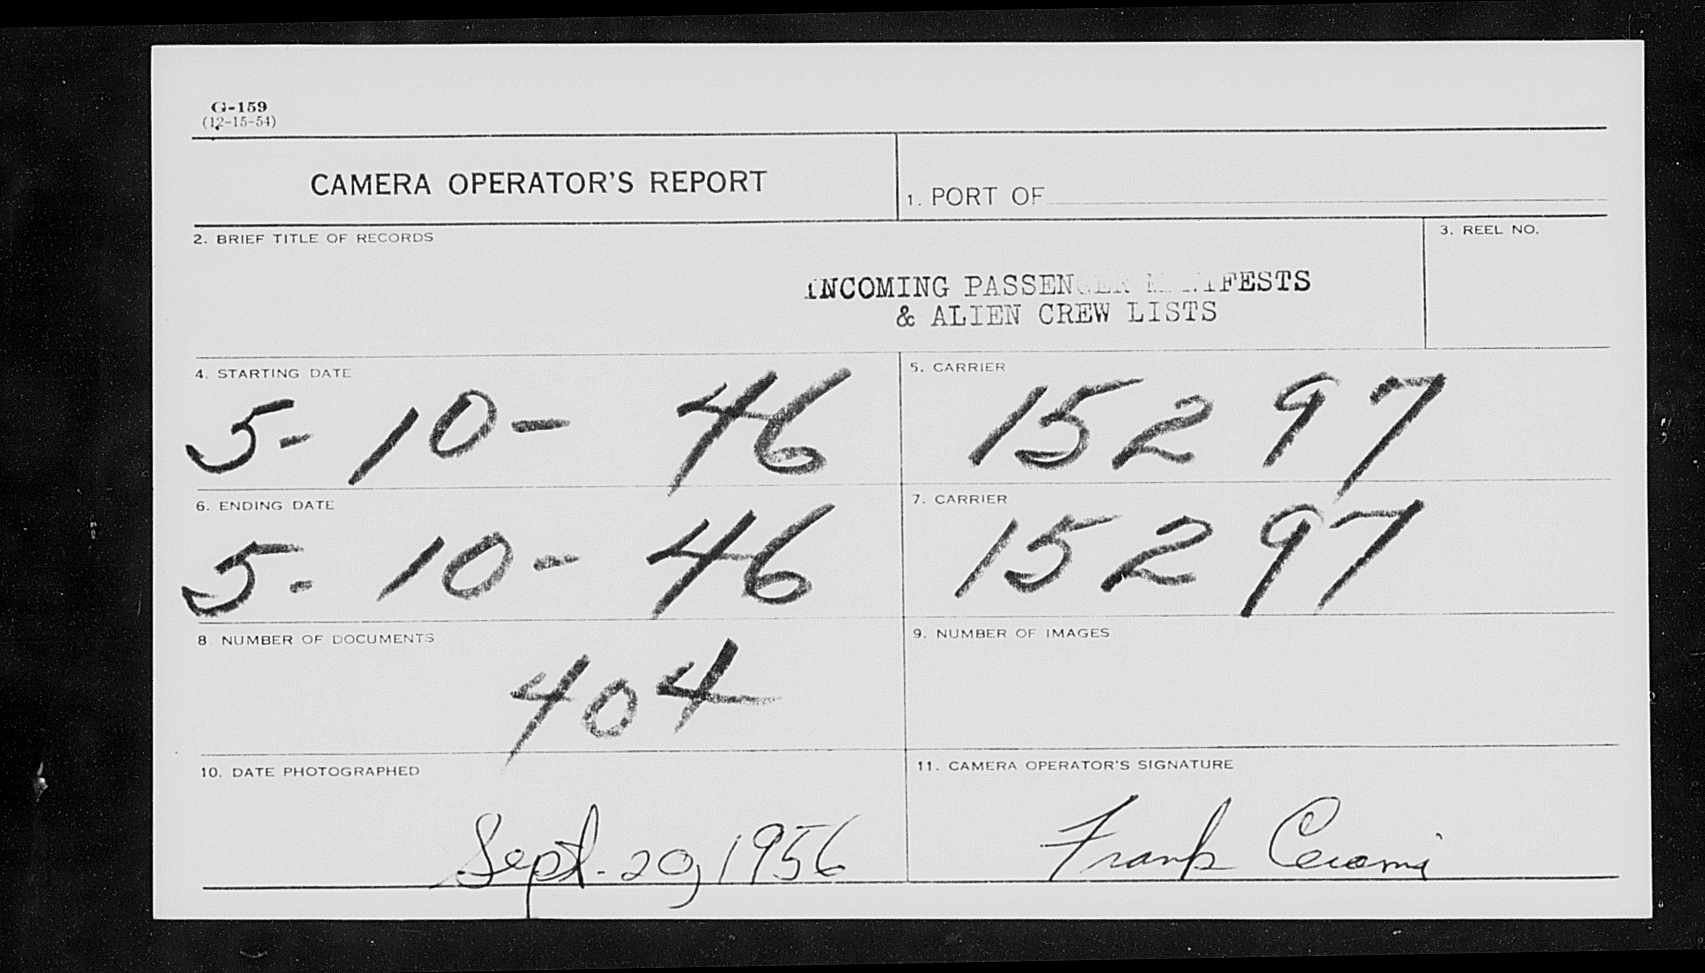 G-159
(12-15-54)
CAMERA OPERATOR'S REPORT
1. PORT OF
2. BRIEF TITLE OF RECORDS
3. REEL NO.
INCOMING PASSENGER MANIFESTS
& ALIEN CREW LISTS
4. STARTING DATE
5-10-46
5. CARRIER
15297
6. ENDING DATE
5-10-46
7. CARRIER
15297
8 NUMBER OF DOCUMENTS
404
9. NUMBER OF IMAGES
10. DATE PHOTOGRAPHED
Sept. 20, 1956
11. CAMERA OPERATOR'S SIGNATURE
Frank